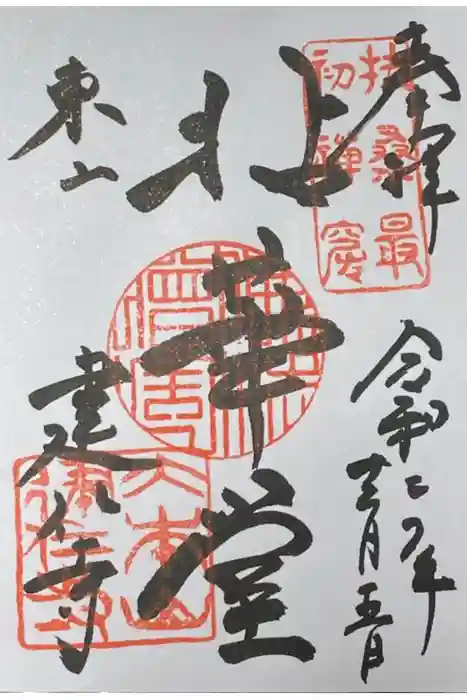 奉拝
扶桑最
初禪窟
令和二年
十二月五日
拈華堂
東山
建仁寺
大本山
建仁寺